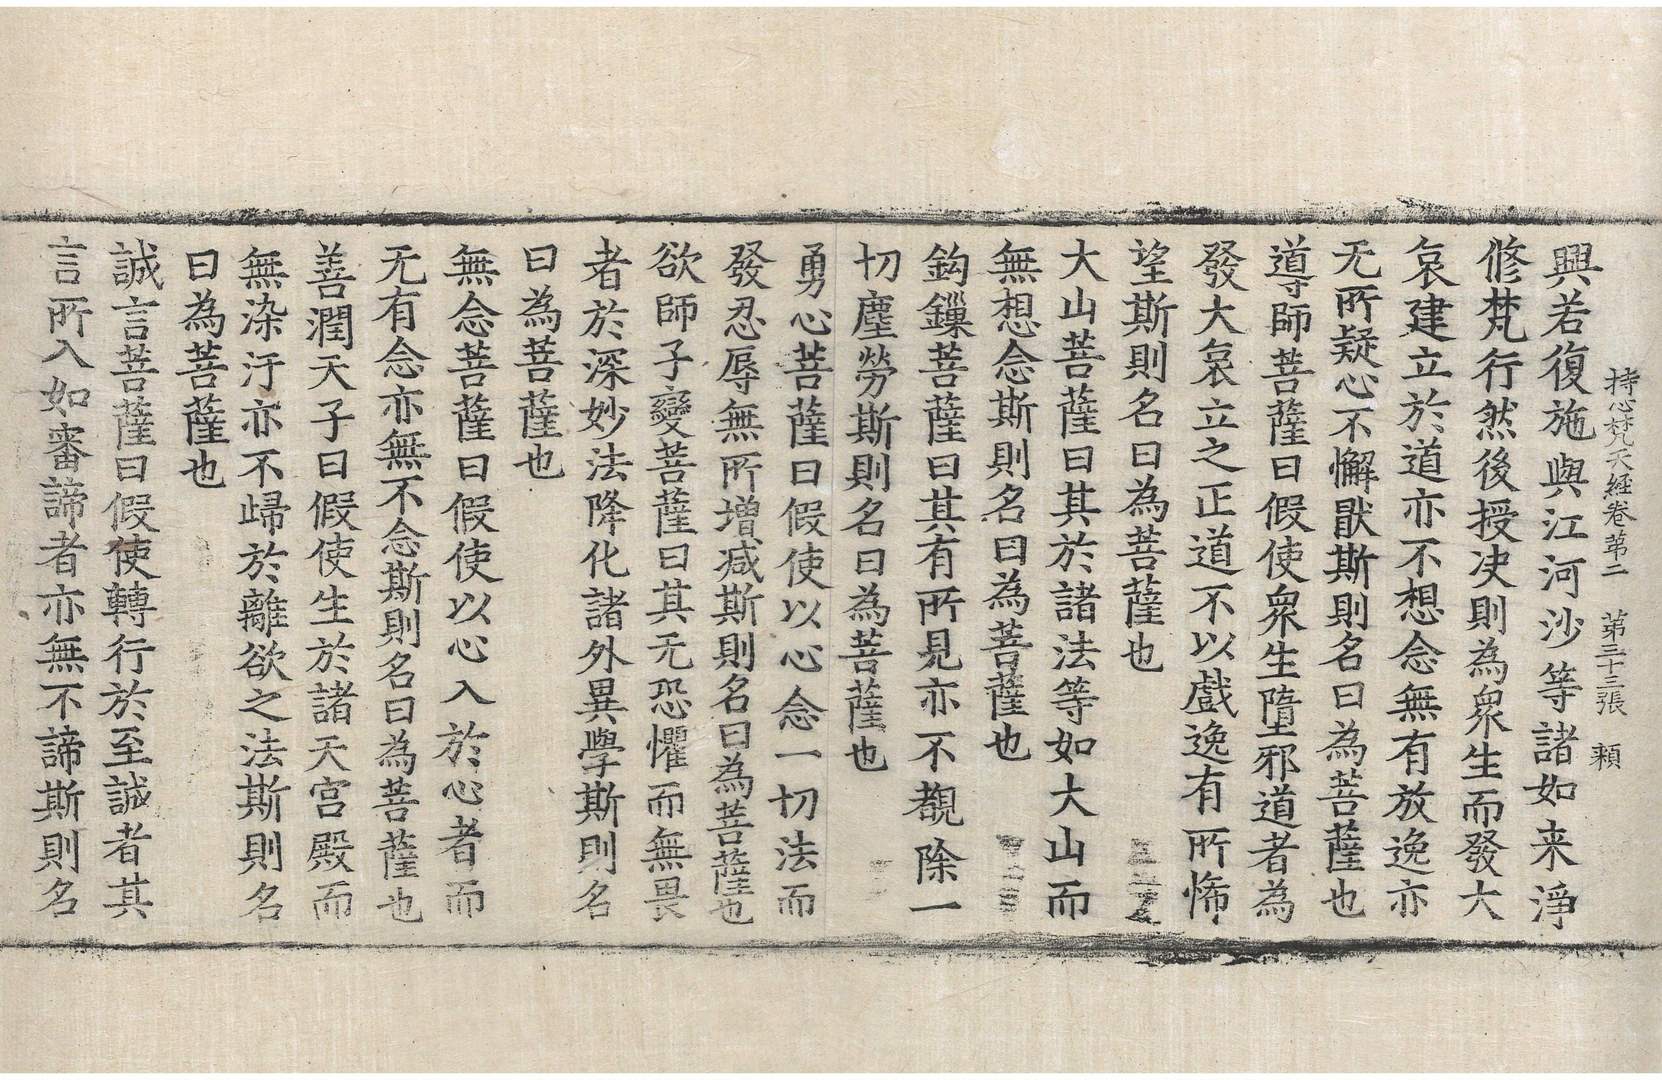 持心梵天經卷第二　第三十三張　頛
興若復施與江河沙等諸如来淨
修梵行然後授决則為衆生而發大
哀建立於道亦不想念無有放逸亦
无所疑心不懈猒斯則名曰為菩薩也
導師菩薩曰假使衆生墮邪道者為
發大哀立之正道不以戲逸有所悕
望斯則名曰為菩薩也
大山菩薩曰其於諸法等如大山而
無想念斯則名曰為菩薩也
鈎鏁菩薩曰其有所見亦不覩除一
切塵勞斯則名曰為菩薩也
勇心菩薩曰假使以心念一切法而
發忍辱無所增减斯則名曰為菩薩也
欲師子變菩薩曰其无恐懼而無畏
者於深妙法降化諸外異學斯則名
曰為菩薩也
無念菩薩曰假使以心入於心者而
无有念亦無不念斯則名曰為菩薩也
善潤天子曰假使生於諸天宮殿而
無染汙亦不歸於離欲之法斯則名
曰為菩薩也
誠言菩薩曰假使轉行於至誠者其
言所入如審諦者亦無不諦斯則名